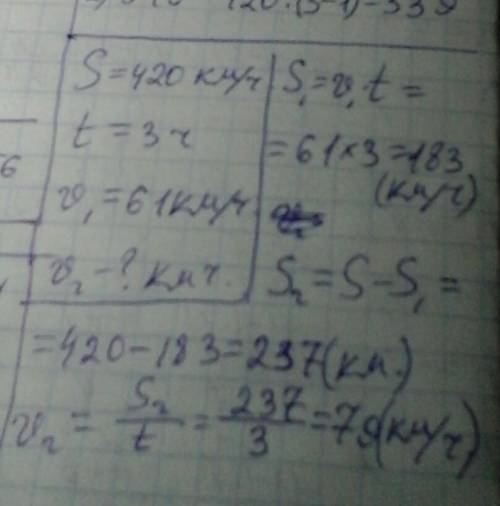 120·(3-1)-339
S=420 км/ч
t=3 ч
v₁=61км/ч
v₂-? км ч.
S₁=v₁t=
=61×3=183
(км/ч)
S₂=S-S₁=
=420-183=237(км.)
v₂=S₂/t=237/3=79(км/ч)
6